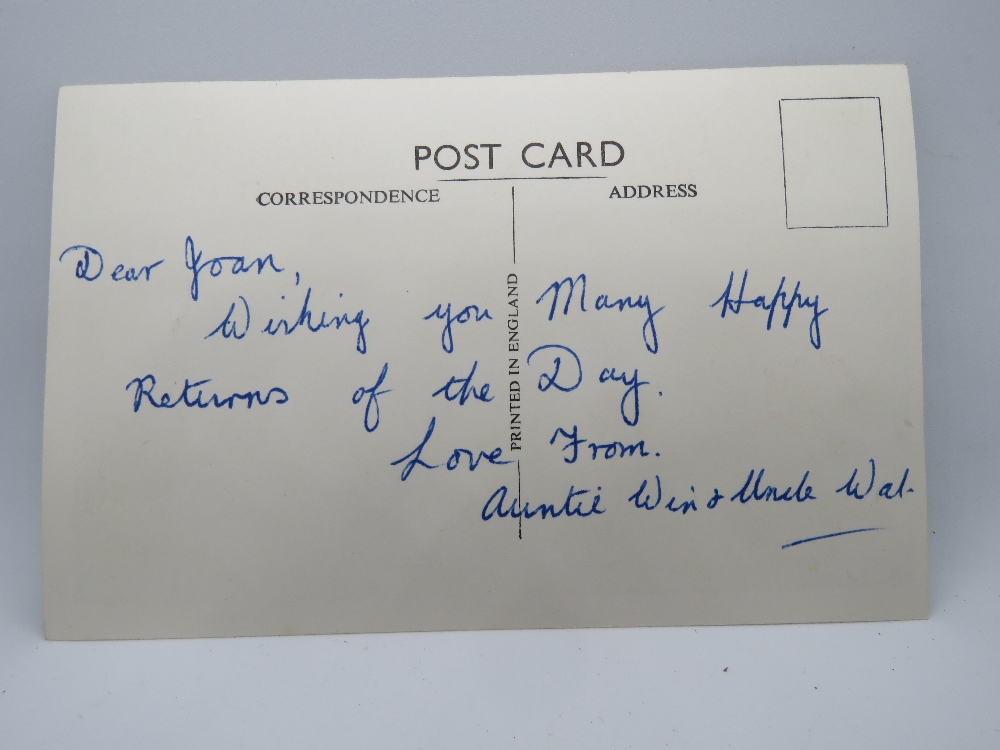 POST CARD
CORRESPONDENCE
ADDRESS
PRINTED IN ENGLAND
Dear Joan,
Wishing you Many Happy
Returns of the Day.
Love From.
Auntie Win & Uncle Wal.